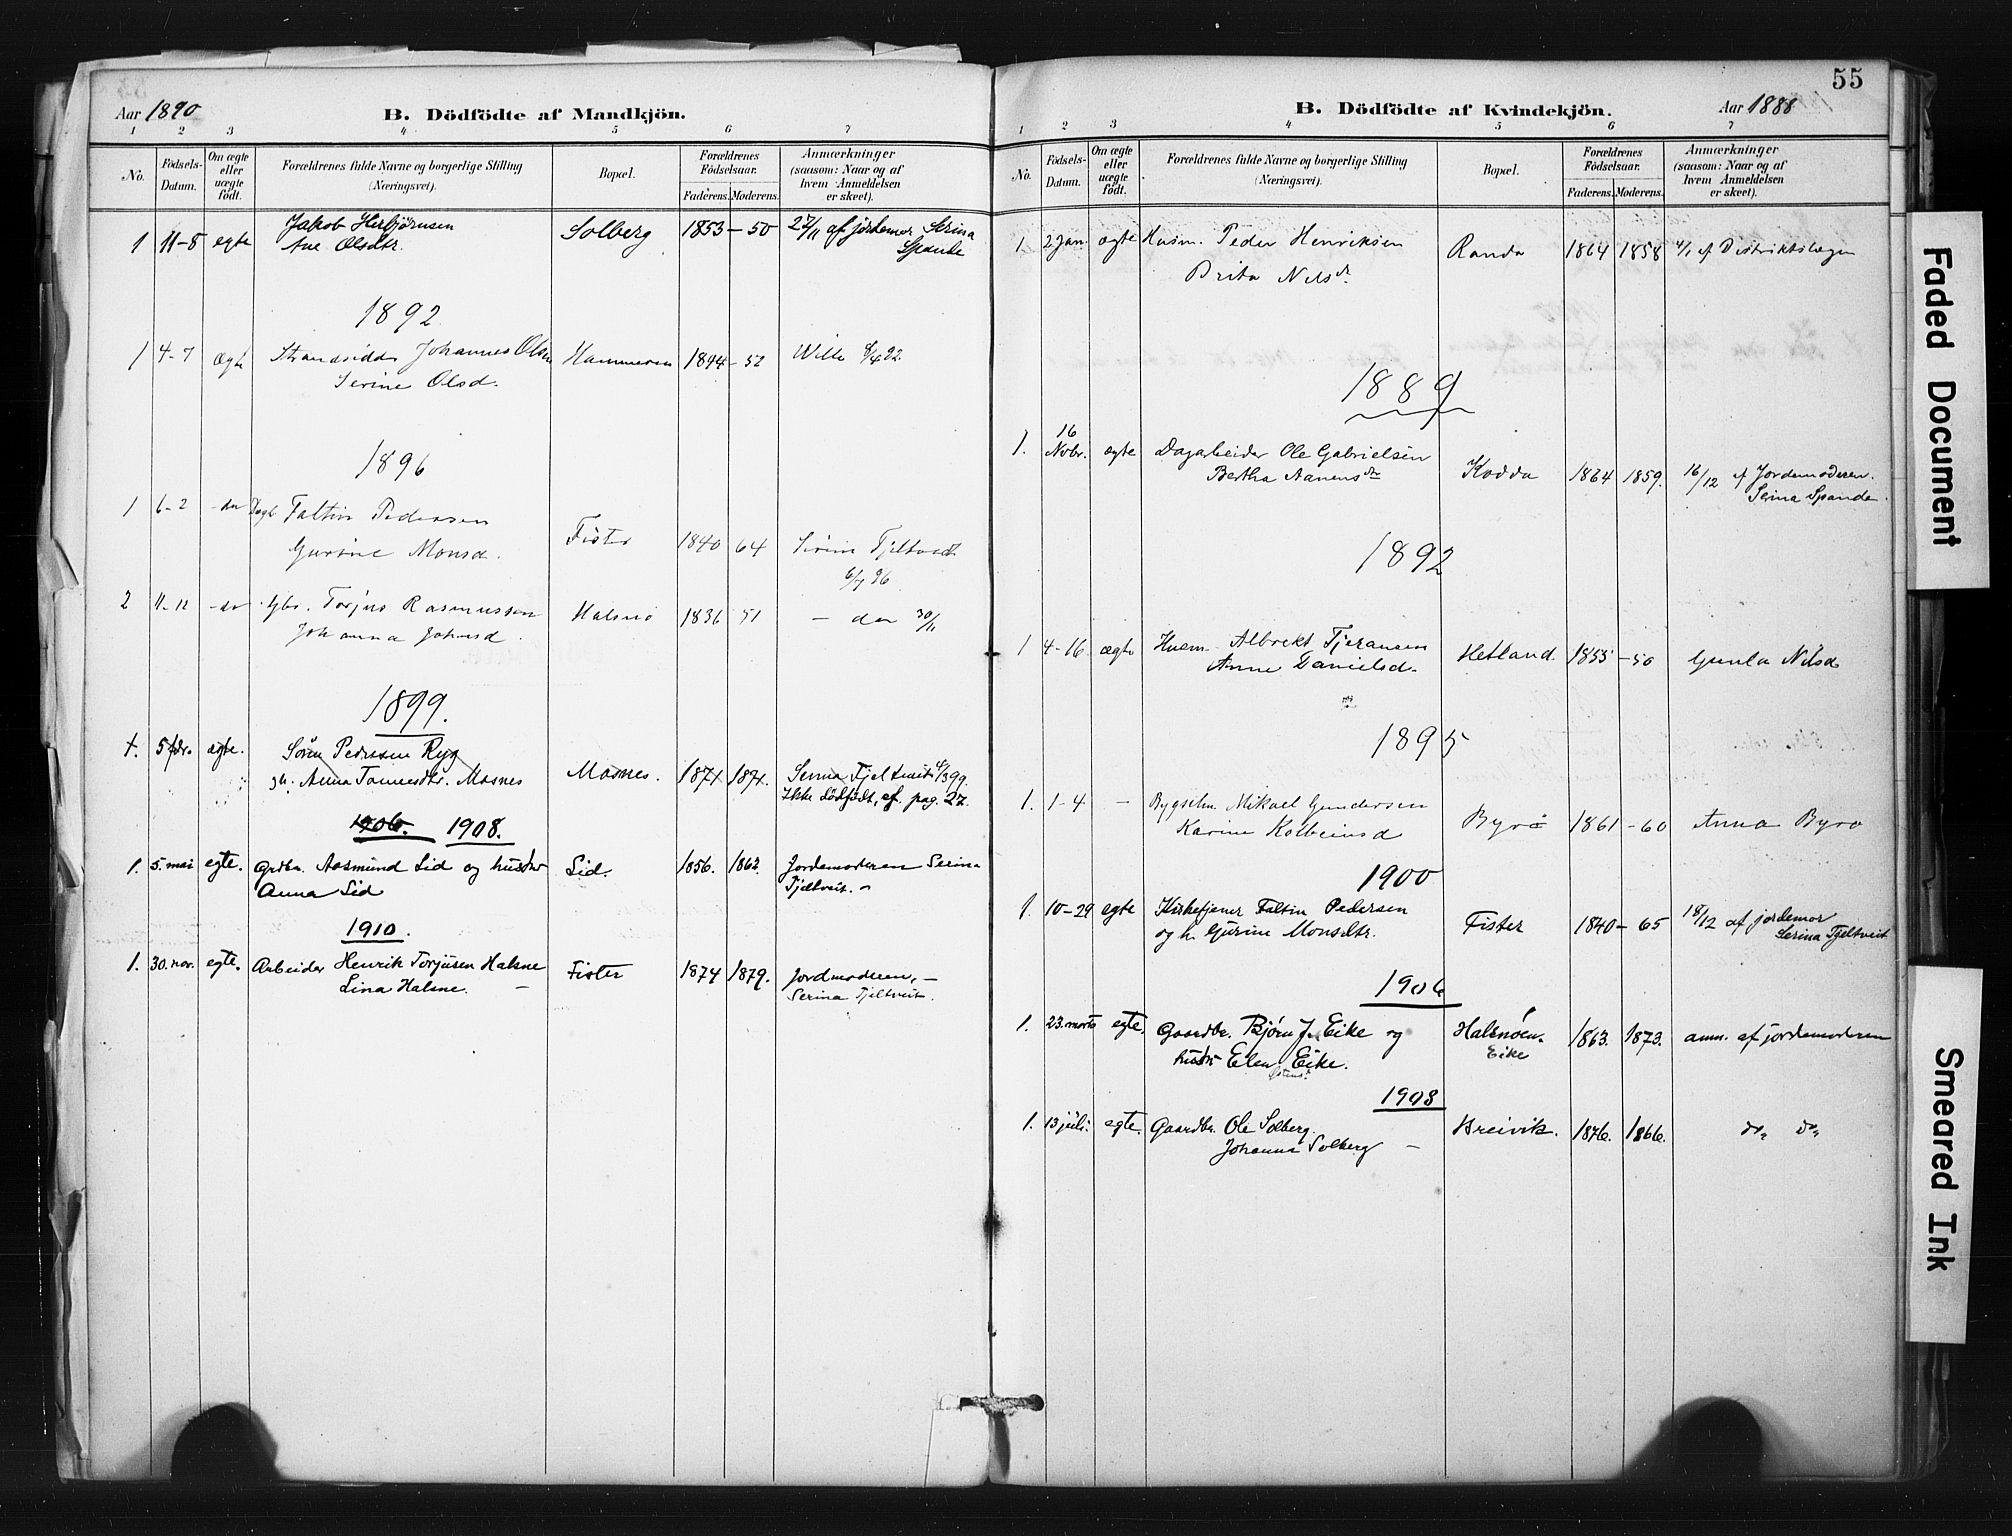 Aar 1890
B. Dödfödte af Mandkjön.
1 2 3 4 5 6 7
No.
Födsels-Datum.
Om ægte eller uægte födt.
Forældrenes fulde Navne og borgerlige Stilling (Næringsvei).
Bopæl.
Forældrenes Födselsaar.
Faderens. Moderens.
Anmærkninger (saasom: Naar og af hvem Anmeldelsen er skeet).
1 11-8 egte Jakob Herbjørnsen Solberg 1853 - 50 27/11 af jordemor Serina
Ane Olsdtr. Spande
1892
1 4-7 Ægte Strandsidder Johannes Olsen Hammeren 1844 - 52
Serine Olsd.
1896
1 6-2 - do Faltin Pedersen Fister 1840 64 Serine Tjeltveit
Gurine Monsd. 6/7 96
2 11-12 - do Gbr. Torjus Rasmussen Halsnø 1836 51 - do 30/11
Johanna Johnsd.
1899.
1. 5 fbr. ægte. Søren Pedersen Ryg Mosnes. 1871. 1871. Serina Tjeltveit 4/3 99
gh. Anna Tonnesdtr. Mosnes Ikke dødfødt, cf. pag. 27.
1906. 1908.
1. 5. mai egte. Grdbr. Aasmund Lid og hustru Lid. 1856. 1862. Jordemoderen Serina
Anna Lid Tjeltveit.
1910.
1. 30. nov. egte. Arbeider Henrik Torjusen Halsne Fister 1874 1879. Jordmoderen, -
Lina Halsne. - Serina Tjeltveit.
55
B. Dödfödte af Kvindekjön.
Aar 1888
1 2 3 4 5 6 7
No.
Födsels-Datum.
Om ægte eller uægte födt.
Forældrenes fulde Navne og borgerlige Stilling (Næringsvei).
Bopæl.
Forældrenes Födselsaar.
Faderens. Moderens.
Anmærkninger (saasom: Naar og af hvem Anmeldelsen er skeet).
1. 2 Jan. ægte Husm. Peder Henriksen Randa 1864 1858 4/1 af Distriktslægen
Brita Nilsdr.
1889
1. 16 Nobr. ægte Dagarbeider Ole Gabrielsen Kodda 1864 1859. 16/12 af Jordemoderen.
Bertha Aanensdr Serina Spande.
1892
1 4-16 ægte Husm. Albrekt Tjeransen Hetland. 1855 - 50 Gunla Nilsd
Anne Danielsd.
1895
1. 1-4 - Bygselm. Mikael Gundersen Byrø 1861 - 60 Anna Byrø
Karine Kolbeinsd
1900
1. 10-29 egte Kirketjener Faltin Pedersen Fister 1840 - 65 18/12 af jordemor
og h. Gurine Monsdtr. Serina Tjeltveit
1906
1. 23. marts egte. Gaardbr. Bjørn J. Eike og Halsnøen. 1863. 1873. anm. af jordemoderen
hustru Elen Eike. Eike
1908
1. 13 juli. egte. Gaardbr. Ole Solberg. Breivik. 1876. 1866. do. do.
Johanna Solberg -
Faded Document
Smeared Ink